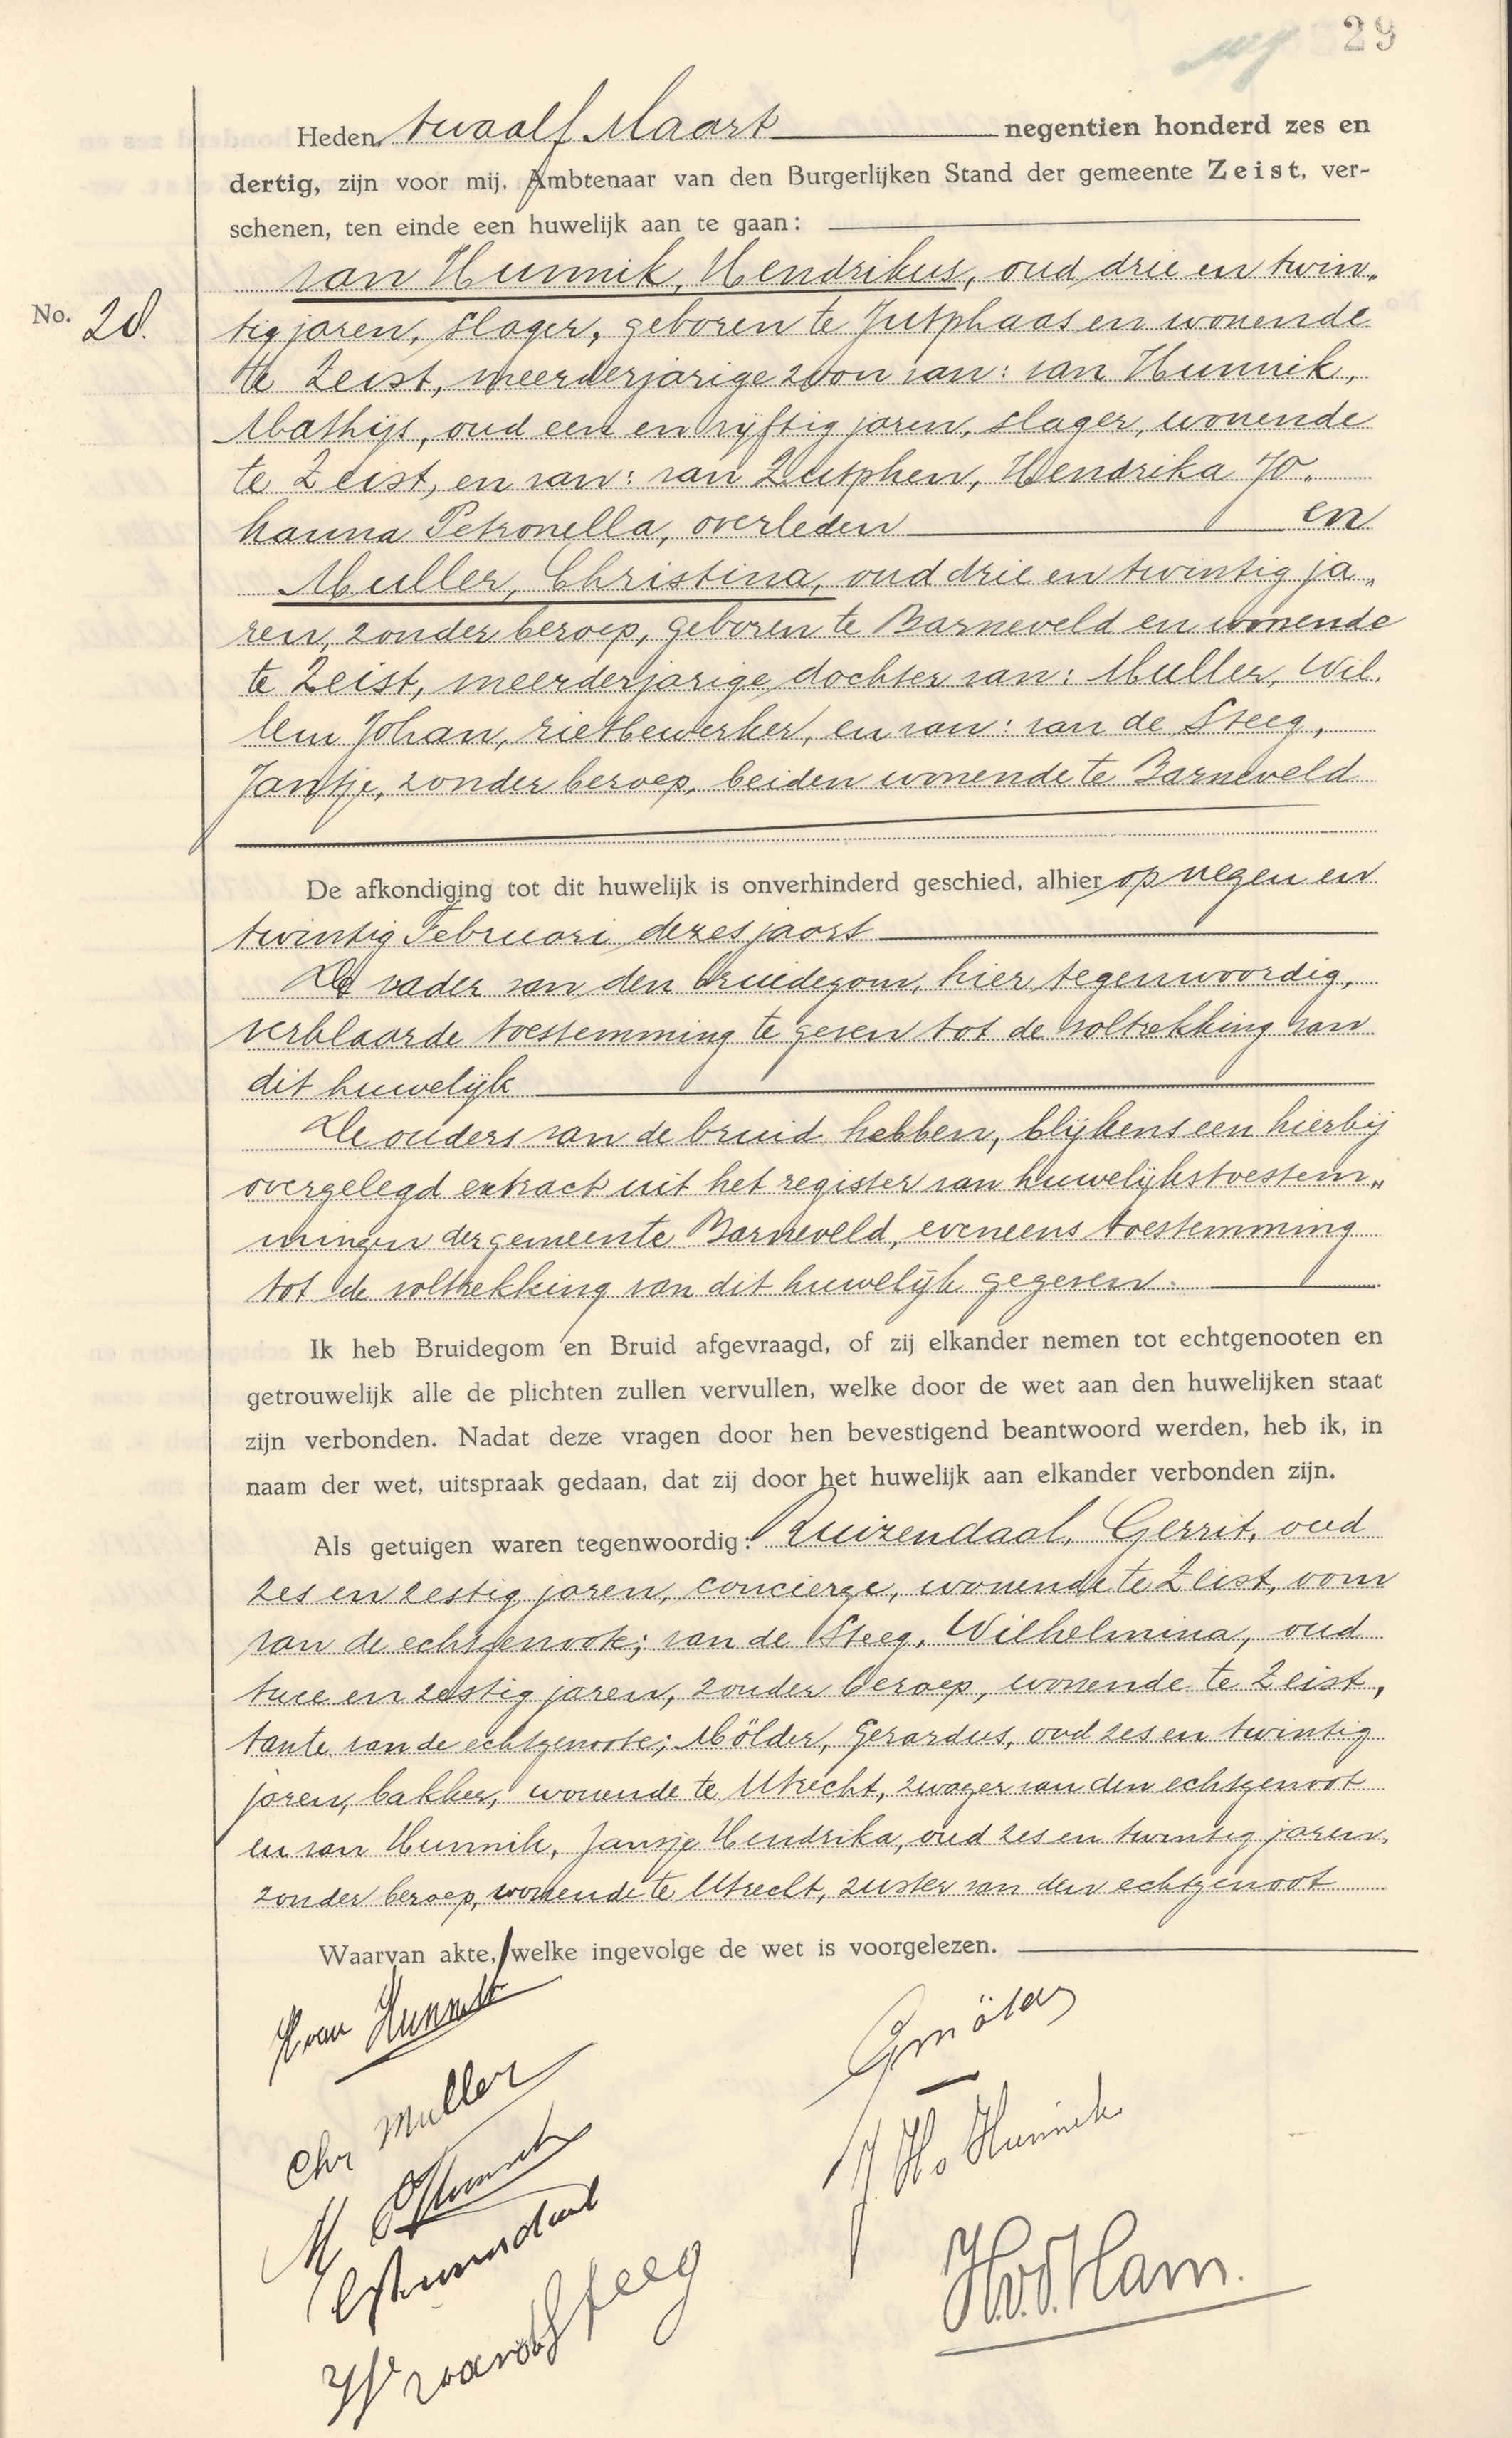 29
Heden, twaalf Maart negentien honderd zes en
dertig, zijn voor mij, Ambtenaar van den Burgerlijken Stand der gemeente Zeist, ver-
schenen, ten einde een huwelijk aan te gaan:
van Hunnik, Hendrikus, oud drie en twin-
No. 28. tig jaren, slager, geboren te Jutphaas en wonende
te Zeist, meerderjarige zoon van: van Hunnik,
Mathijs, oud een en vijftig jaren, slager, wonende
te Zeist, en van: van Zutphen, Hendrika Jo-
hanna Petronella, overleden en
Muller, Christina, oud drie en twintig ja-
ren, zonder beroep, geboren te Barneveld en wonende
te Zeist, meerderjarige dochter van: Muller, Wil-
lem Johan, rietbewerker, en van: van de Steeg,
Jantje, zonder beroep, beiden wonende te Barneveld
De afkondiging tot dit huwelijk is onverhinderd geschied, alhier op negen en
twintig Februari dezes jaars
De vader van den bruidegom, hier tegenwoordig,
verklaarde toestemming te geven tot de voltrekking van
dit huwelijk
De ouders van de bruid hebben, blijkens een hierbij
overgelegd extract uit het register van huwelijkstoestem-
mingen der gemeente Barneveld, eveneens toestemming
tot de voltrekking van dit huwelijk gegeven.
Ik heb Bruidegom en Bruid afgevraagd, of zij elkander nemen tot echtgenooten en
getrouwelijk alle de plichten zullen vervullen, welke door de wet aan den huwelijken staat
zijn verbonden. Nadat deze vragen door hen bevestigend beantwoord werden, heb ik, in
naam der wet, uitspraak gedaan, dat zij door het huwelijk aan elkander verbonden zijn.
Als getuigen waren tegenwoordig: Ruizendaal, Gerrit, oud
zes en zestig jaren, concierge, wonende te Zeist, oom
van de echtgenoote; van de Steeg, Wilhelmina, oud
twee en zestig jaren, zonder beroep, wonende te Zeist,
tante van de echtgenoote; Mölder, Gerardus, oud zes en twintig
jaren, bakker, wonende te Utrecht, zwager van den echtgenoot
en van Hunnik, Jansje Hendrika, oud zes en twintig jaren,
zonder beroep, wonende te Utrecht, zuster van den echtgenoot
Waarvan akte, welke ingevolge de wet is voorgelezen.
H van Hunnik
Chr Muller
M v Hunnik
W van de Steeg
G Mölder
J H v Hunnik
H.v.d. Ham.